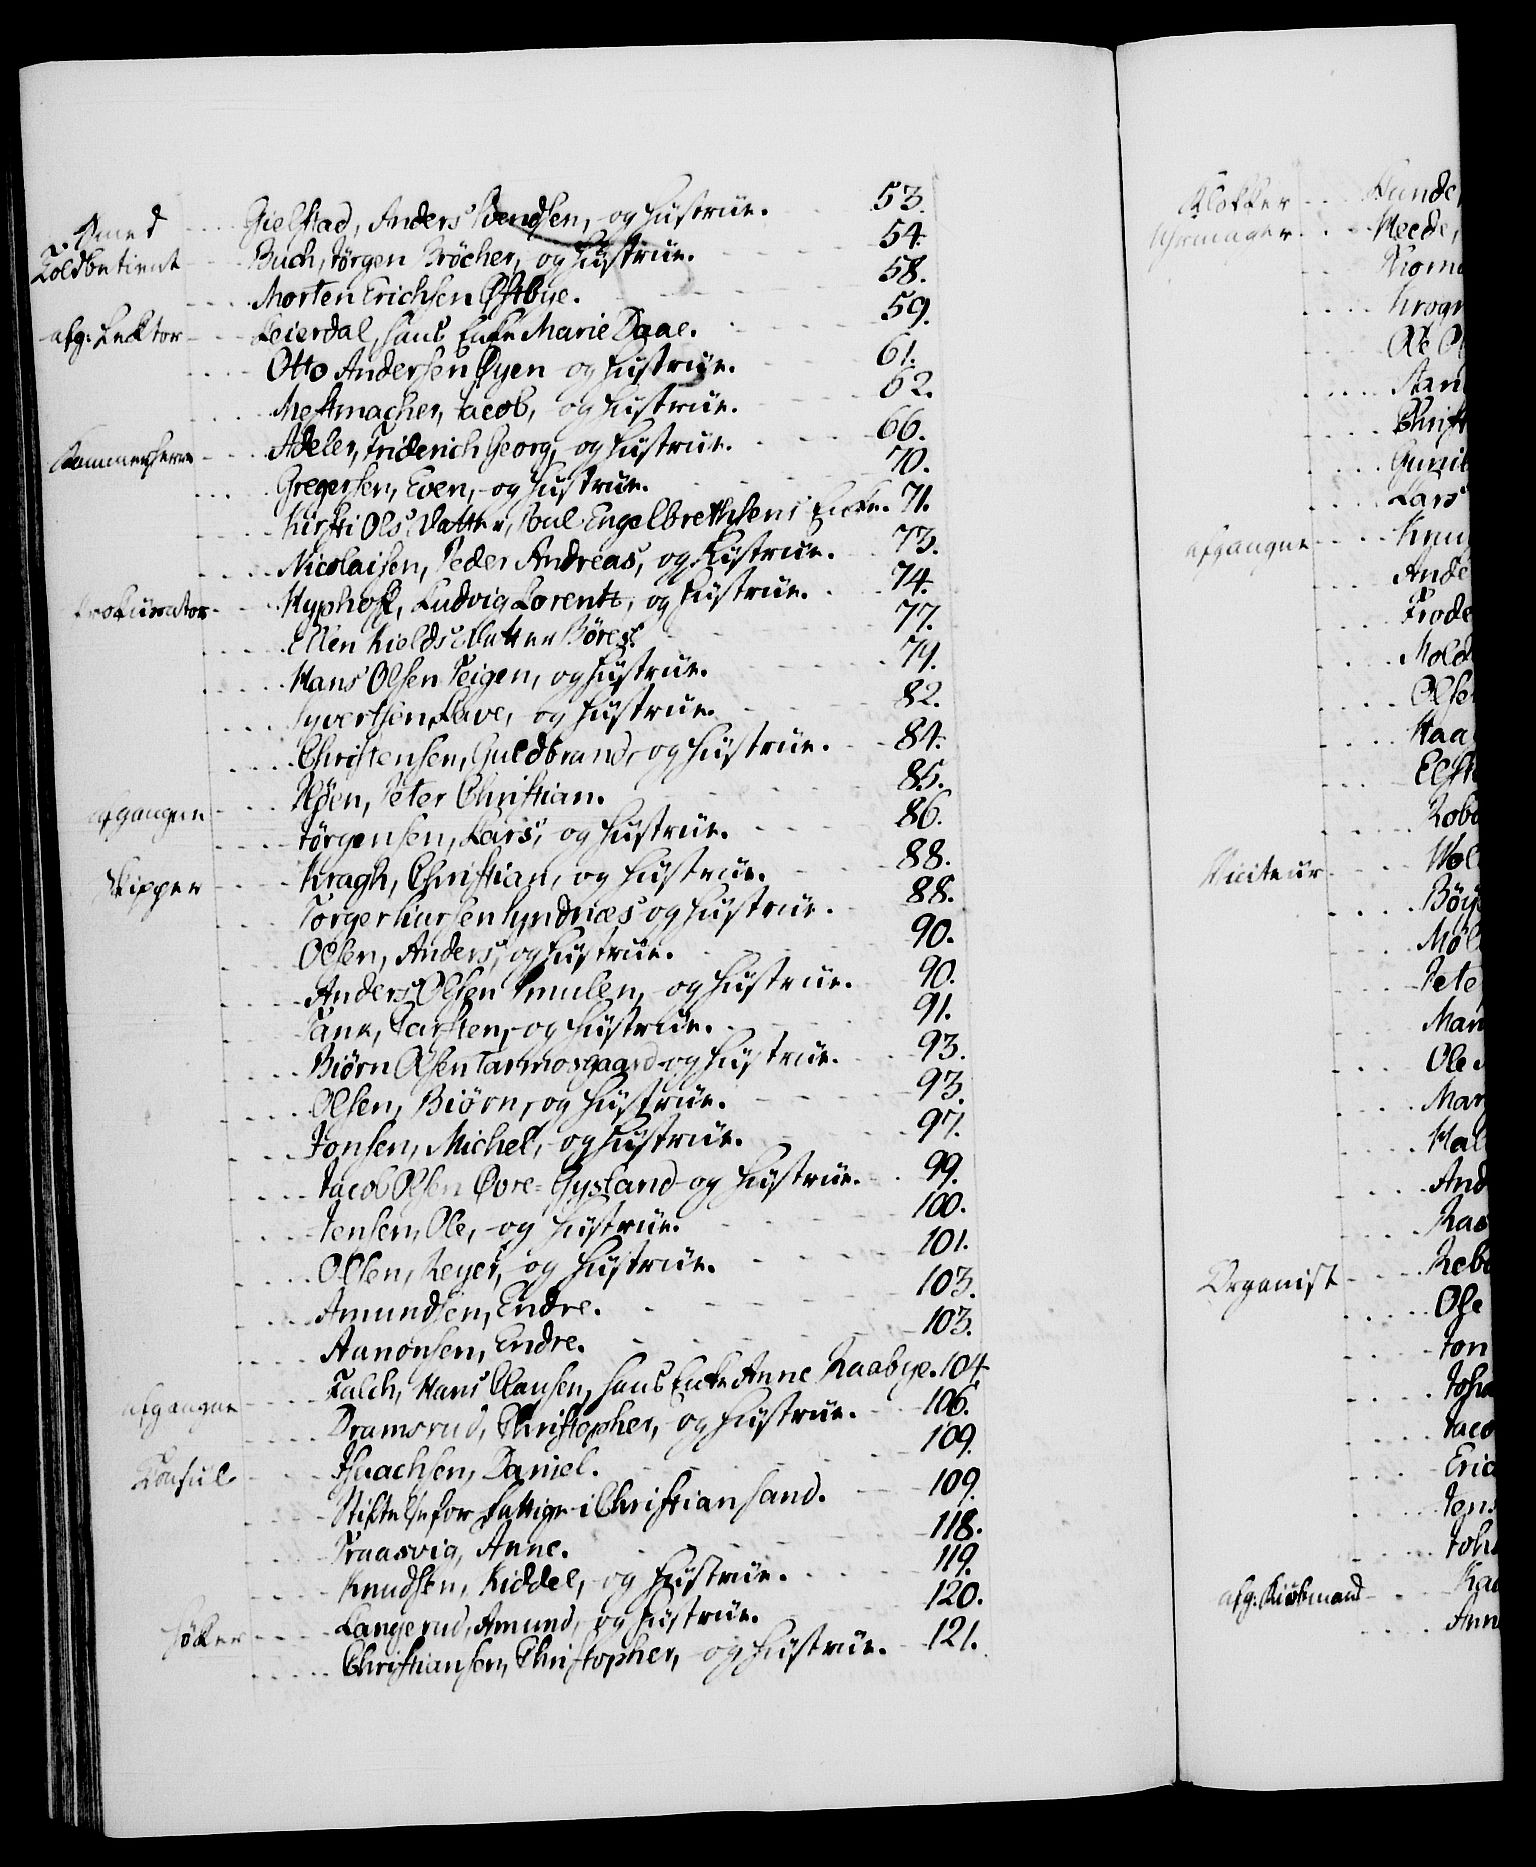 Smed - - - Gielstad, Anders Svendsen, og Hustrue. 53.
Toldbetient - - - Buch, Jørgen Brøcher, og Hustrue. 54.
- - - Morten Erichsen Østbye. 58.
afg: Lector - - - Leierdal, hans Enke Marie Daae. 59.
- - - Otto Andersen Øyen og Hustrue. 61.
- - - Mestmacher, Jacob, og Hustrue. 62.
Kammerherre - - - Adeler, Friderich Georg, og Hustrue. 66.
- - - Gregersen, Even, og Hustrue. 70.
- - - Kirsti Ols Datter, Poul Engelbrethsens Enke. 71.
- - - Nicolaisen, Peder Andreas, og Hustrue. 73.
Prokurator - - - Hyphoff, Ludvig Lorentz, og Hustrue. 74.
- - - Ellen Kields Datter Børes. 77.
- - - Hans Olsen Teigen, og Hustrue. 79.
- - - Syvertsen, Save, og Hustrue. 82.
- - - Christensen, Guldbrand, og Hustrue. 84.
afgangne - - - Ysøen, Peter Christian. 85.
- - - Jørgensen, Lars, og Hustrue. 86.
Skipper - - - Kragh, Christian, og Hustrue. 88.
- - - Torger Larsen Lyndnæs og Hustrue. 88.
- - - Olsen, Anders, og Hustrue. 90.
- - - Anders Olsen Smulen, og Hustrue. 90.
- - - Tank, Carsten, og Hustrue. 91.
- - - Biørn Olsen Tarmosgaard og Hustrue. 93.
- - - Olsen, Biørn, og Hustrue. 93.
- - - Jonsen, Michel, og Hustrue. 97.
- - - Jacob Olsen Øvre-Gysland og Hustrue. 99.
- - - Jensen, Ole, og Hustrue. 100.
- - - Olsen, Reyer, og Hustrue. 101.
- - - Amundsen, Endre. 103.
- - - Aanonsen, Endre. 103.
afgangne - - - Falch, Hans Clausen, hans Enke Anne Raabye. 104.
- - - Dramsrud, Christopher, og Hustrue. 106.
Konsul - - - Isaachsen, Daniel. 109.
- - - Stiftelse for Fattige i Christiansand. 109.
- - - Traasvig, Anne. 118.
- - - Knudsen, Kiddel, og Hustrue. 119.
Høker - - - Langerud, Amund, og Hustrue. 120.
- - - Christiansen, Christopher, og Hustrue. 121.
Klokker - - - Hunde
Uhrmager - - - Heede,
Krog
Ole O
Christ
Gunil
Lars
afgangne - - - Knu
Ande
Frode
Mold
Olse
Haa
Robo
Viciteur - - - Wol
Bøy
Møl
Pete
Mar
Ole
Mar
Hal
And
Ras
Organist - - - Rebo
Ole
Jon
Joha
Jaco
Eric
Jens
Joh
afg: Kiøbmand - - - Ra
Ann